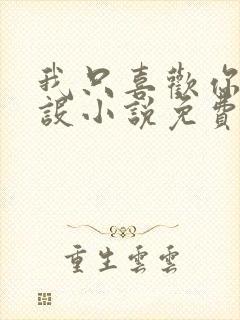 我只喜歡你
設小說免費
重生雲雲